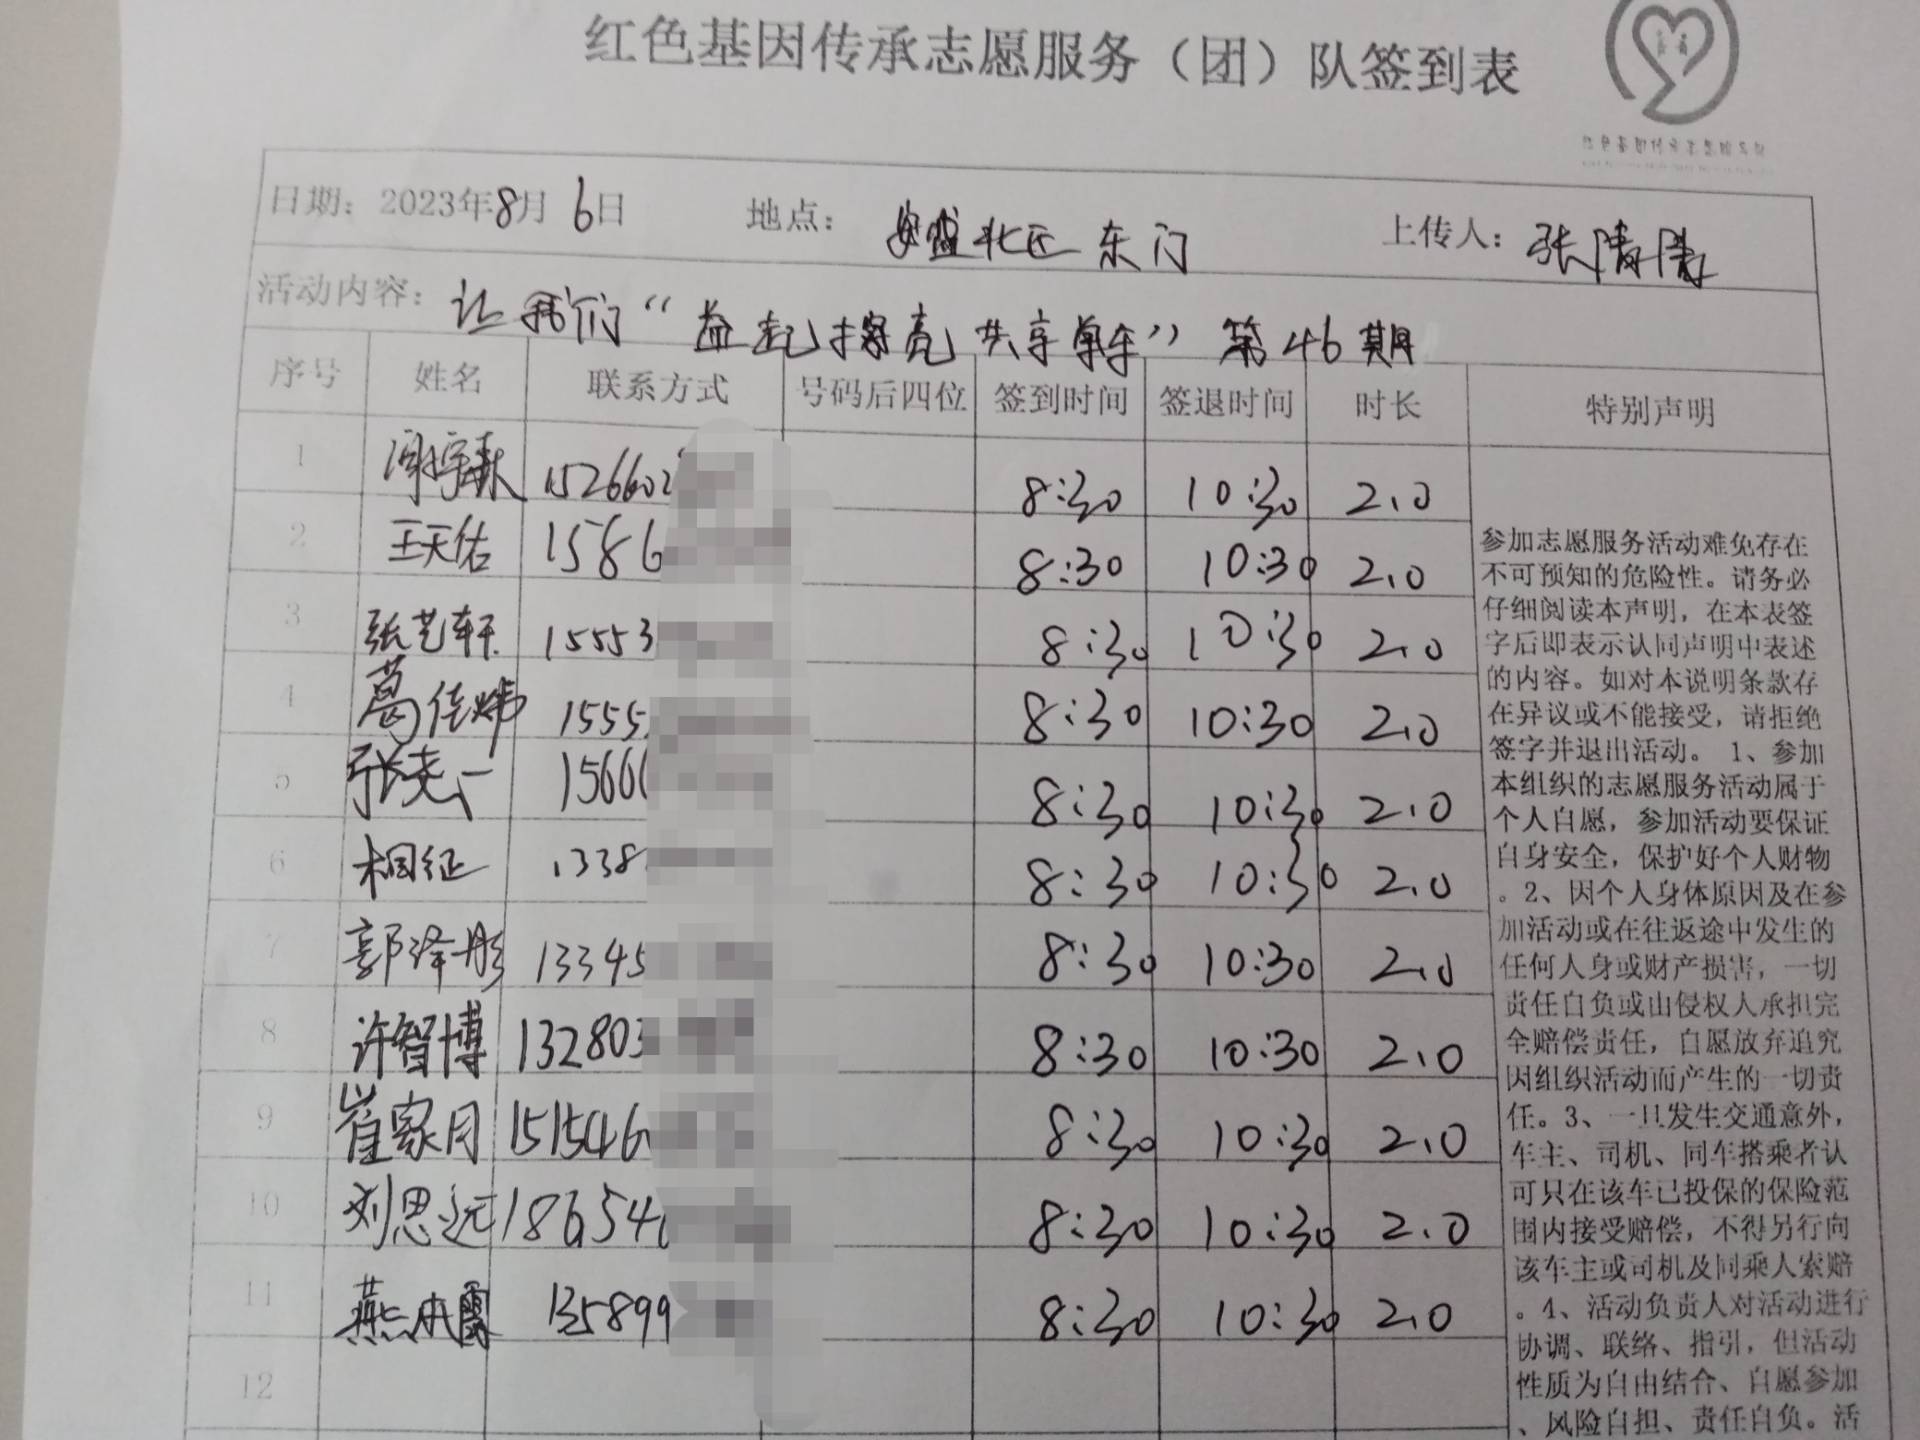 红色基因传承志愿服务（团）队签到表
日期：2023年8月6日 地点：安盛北区东门 上传人：张倩倩
活动内容：让我们“益起擦亮共享单车”第46期
序号 姓名 联系方式 号码后四位 签到时间 签退时间 时长 特别声明
1 1526602 8:30 10:30 2.0
2 王天佑 1586 8:30 10:30 2.0
3 张艺轩 15553 8:30 10:30 2.0
4 葛佳炜 1555 8:30 10:30 2.0
5 1560 8:30 10:30 2.0
6 相征 1338 8:30 10:30 2.0
7 郭泽彤 13345 8:30 10:30 2.0
8 许智博 132803 8:30 10:30 2.0
9 崔家月 151546 8:30 10:30 2.0
10 刘思远 186546 8:30 10:30 2.0
11 135899 8:30 10:30 2.0
12
参加志愿服务活动难免存在
不可预知的危险性。请务必
仔细阅读本声明，在本表签
字后即表示认同声明中表述
的内容。如对本说明条款存
在异议或不能接受，请拒绝
签字并退出活动。1、参加
本组织的志愿服务活动属于
个人自愿，参加活动要保证
自身安全，保护好个人财物
。2、因个人身体原因及在参
加活动或在往返途中发生的
任何人身或财产损害，一切
责任自负或由侵权人承担完
全赔偿责任，自愿放弃追究
因组织活动而产生的一切责
任。3、一旦发生交通意外，
车主、司机、同车搭乘者认
可只在该车已投保的保险范
围内接受赔偿，不得另行向
该车主或司机及同乘人索赔
。4、活动负责人对活动进行
协调、联络、指引，但活动
性质为自由结合、自愿参加
、风险自担、责任自负。活